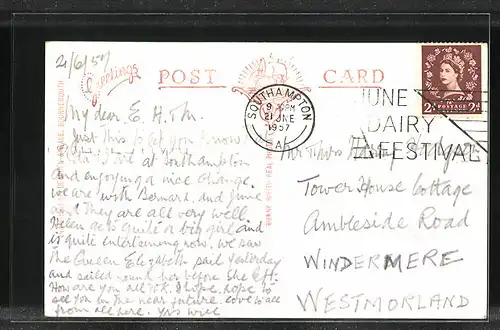 21/6/57
Greetings
POST CARD
SOUTHAMPTON
9 PM
21 JUNE
1957
A
JUNE
DAIRY
FESTIVAL
2d POSTAGE 2d
My dear E.
Just this to let you know
are at Southampton
and enjoying a nice change.
we are with Bernard, and June
and they are all very well.
Helen gets quite a big girl and
is quite entertaining now. we saw
the Queen Elizabeth sail yesterday
and sailed round her before she left.
How are you all? O.K. I hope. hope to
see you in the near future. love to all
from all here.
Tower House Cottage
Ambleside Road
WINDERMERE
WESTMORLAND